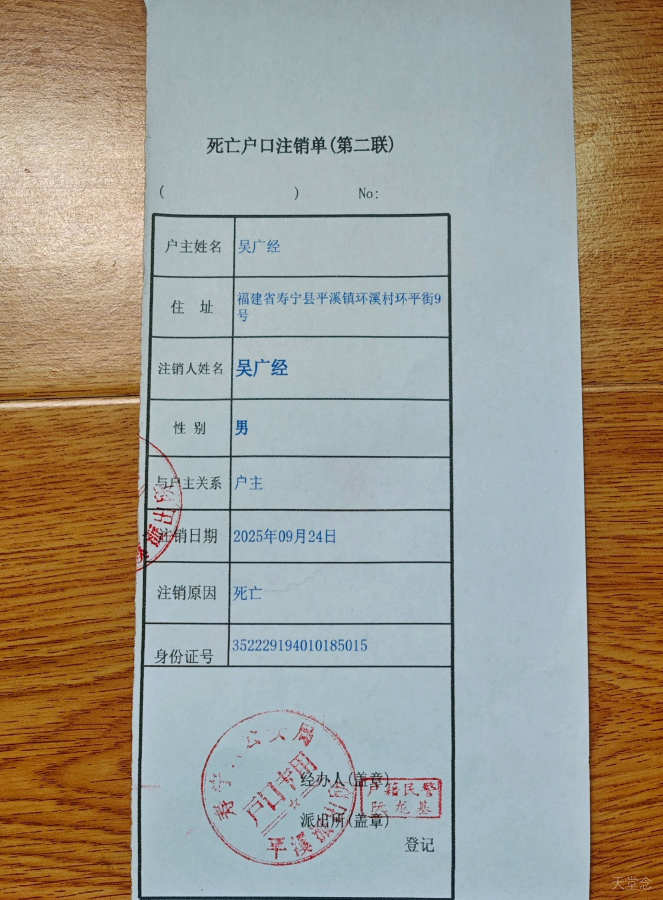 死亡户口注销单(第二联)
( ) No:
户主姓名 吴广经
住 址 福建省寿宁县平溪镇环溪村环平街9
号
注销人姓名 吴广经
性 别 男
与户主关系 户主
注销日期 2025年09月24日
注销原因 死亡
身份证号 352229194010185015
户口专用
平溪派出所
经办人(盖章)
户籍民警
派出所(盖章)
登记
天堂念